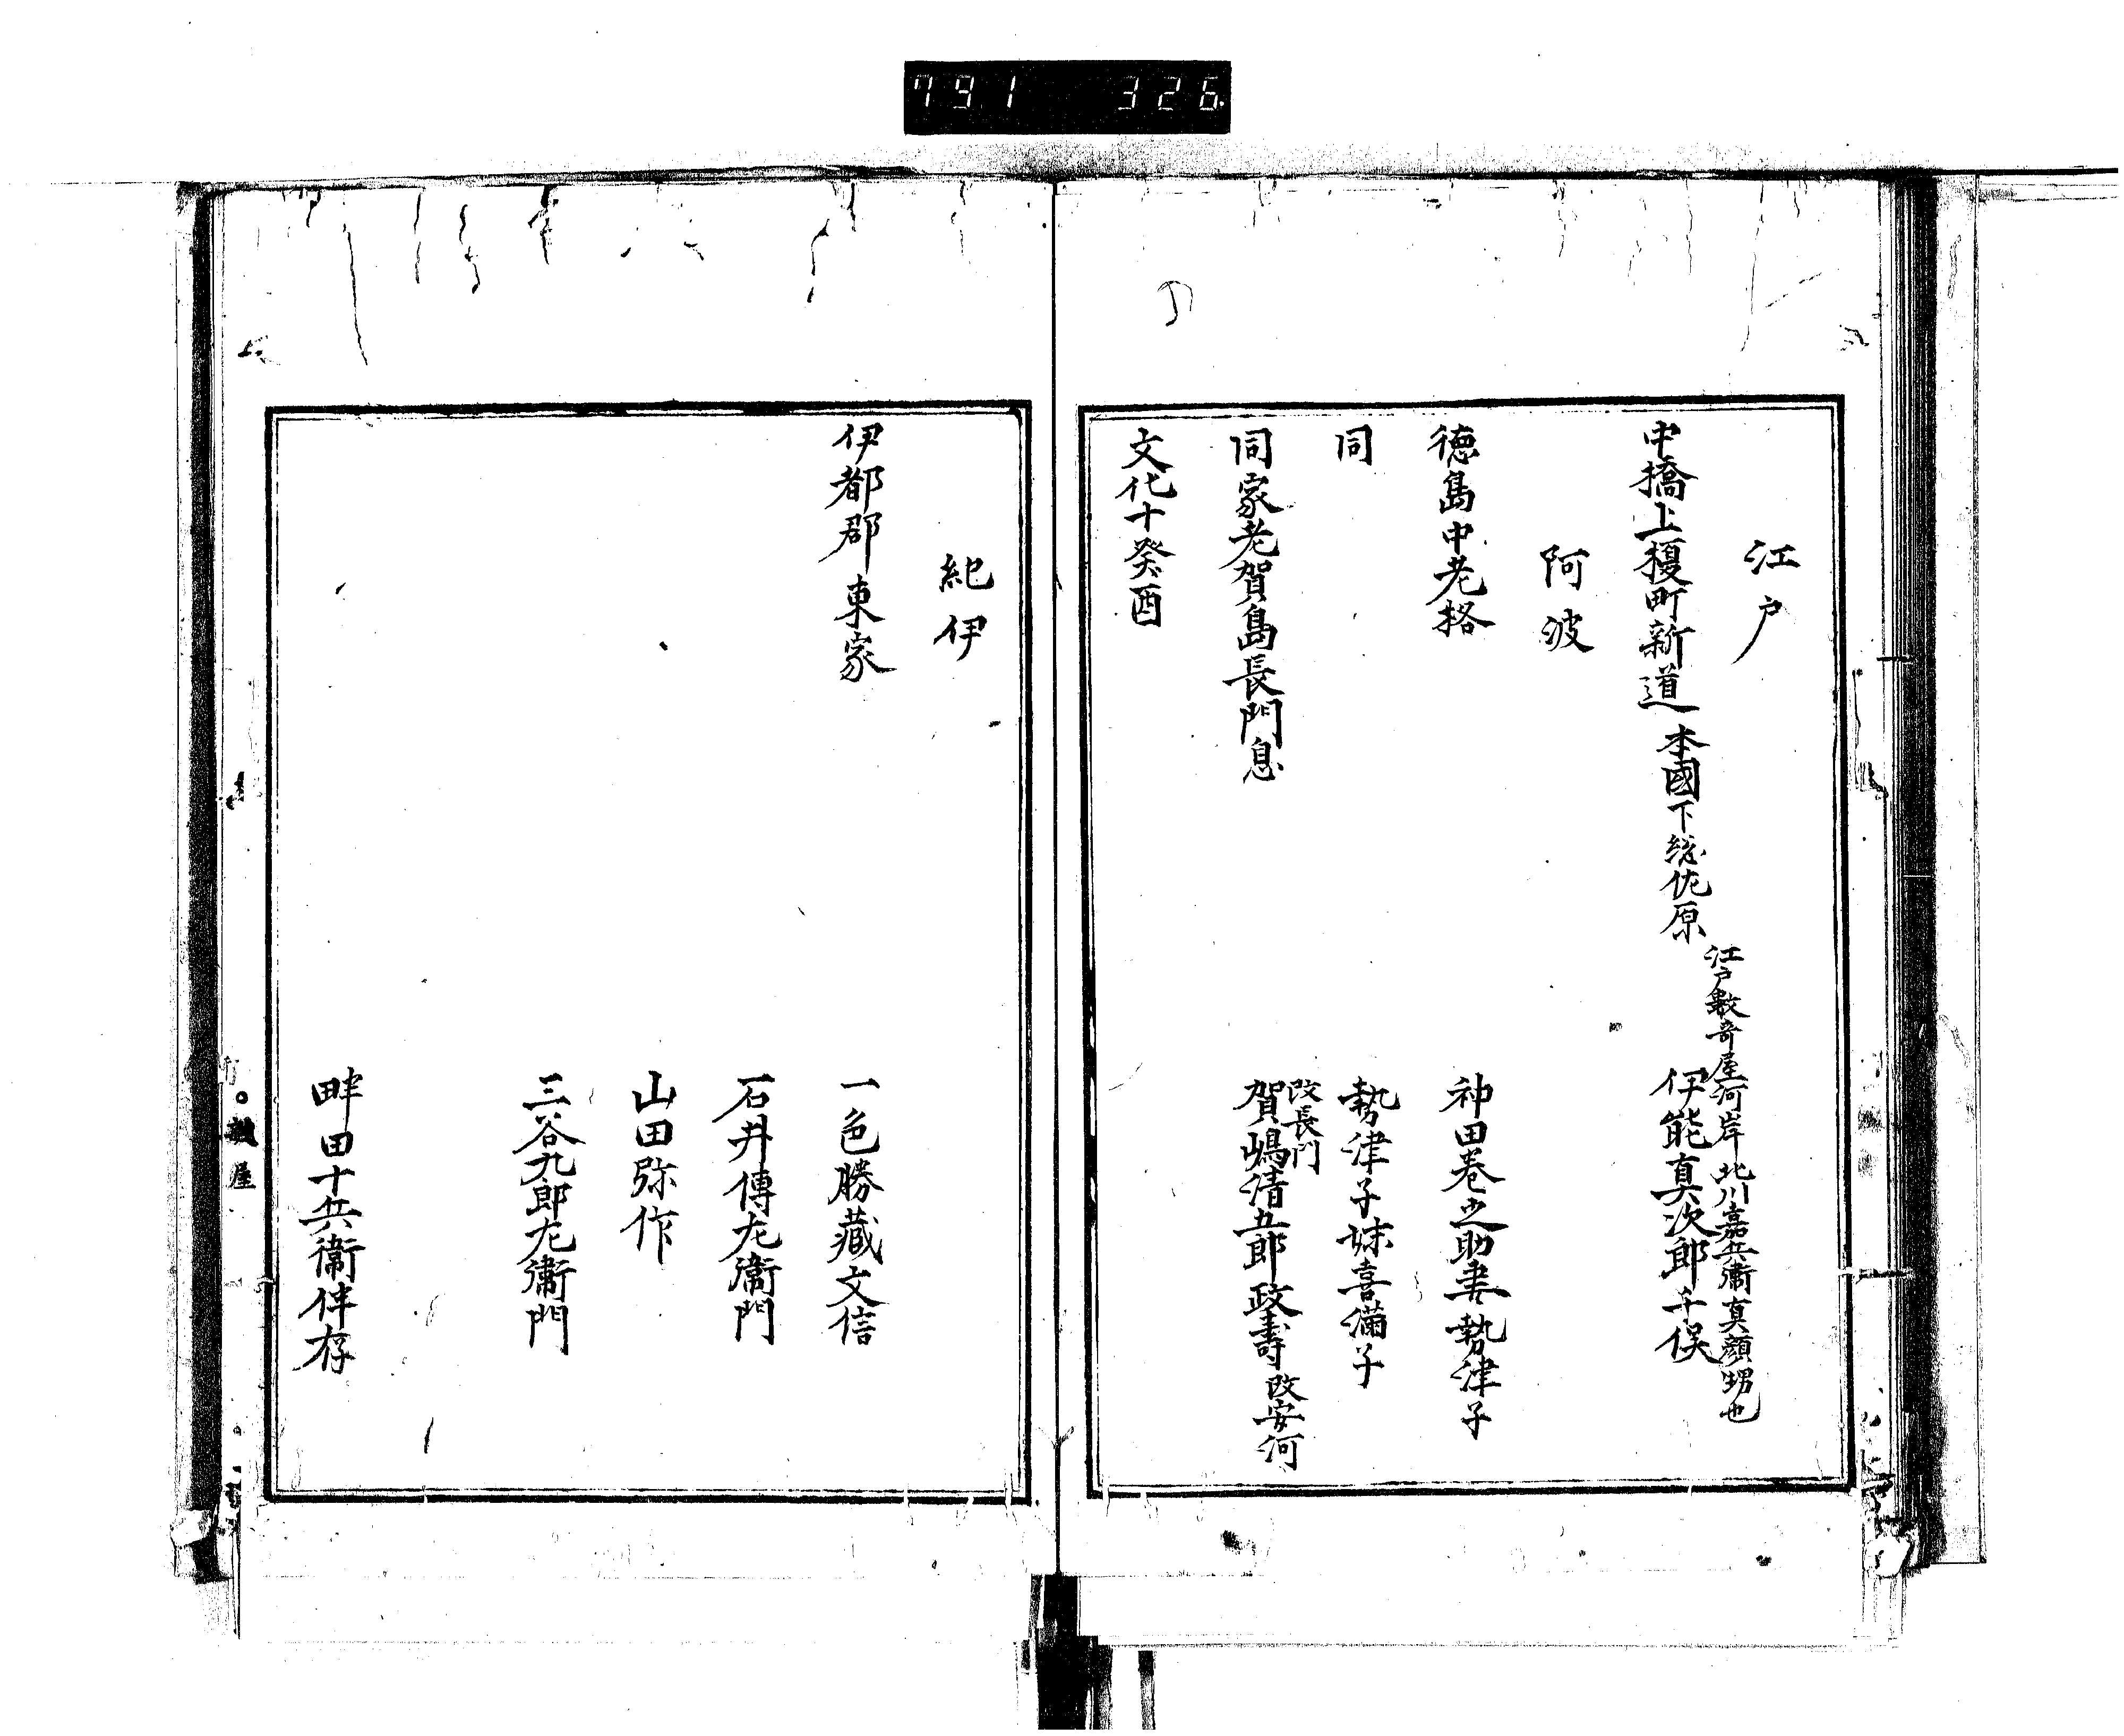 791 326
江戸
中橋上槇町新道 本國下総佐原
江戸数寄屋河岸北川嘉兵衛真顔甥也
伊能真次郎千俣
阿波
徳島中老格 神田巻之助妻勢津子
同 勢津子妹喜満子
同家老賀島長門息
改長門
賀嶋清五郎政壽 改安何
文化十癸酉
紀伊
伊都郡東家 一色勝蔵文信
石井傳左衛門
山田弥作
三谷九郎左衛門
畔田十兵衛伴存